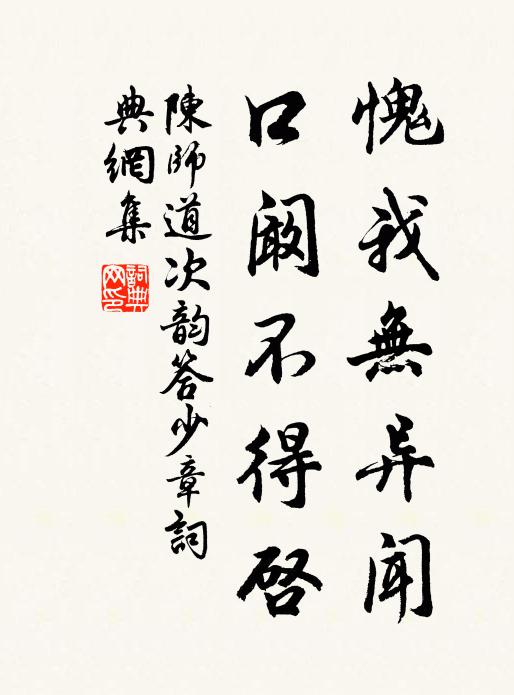 愧我無异聞
口阚不得啓
陳師道次韵答少章詞
典網集
詞典網印